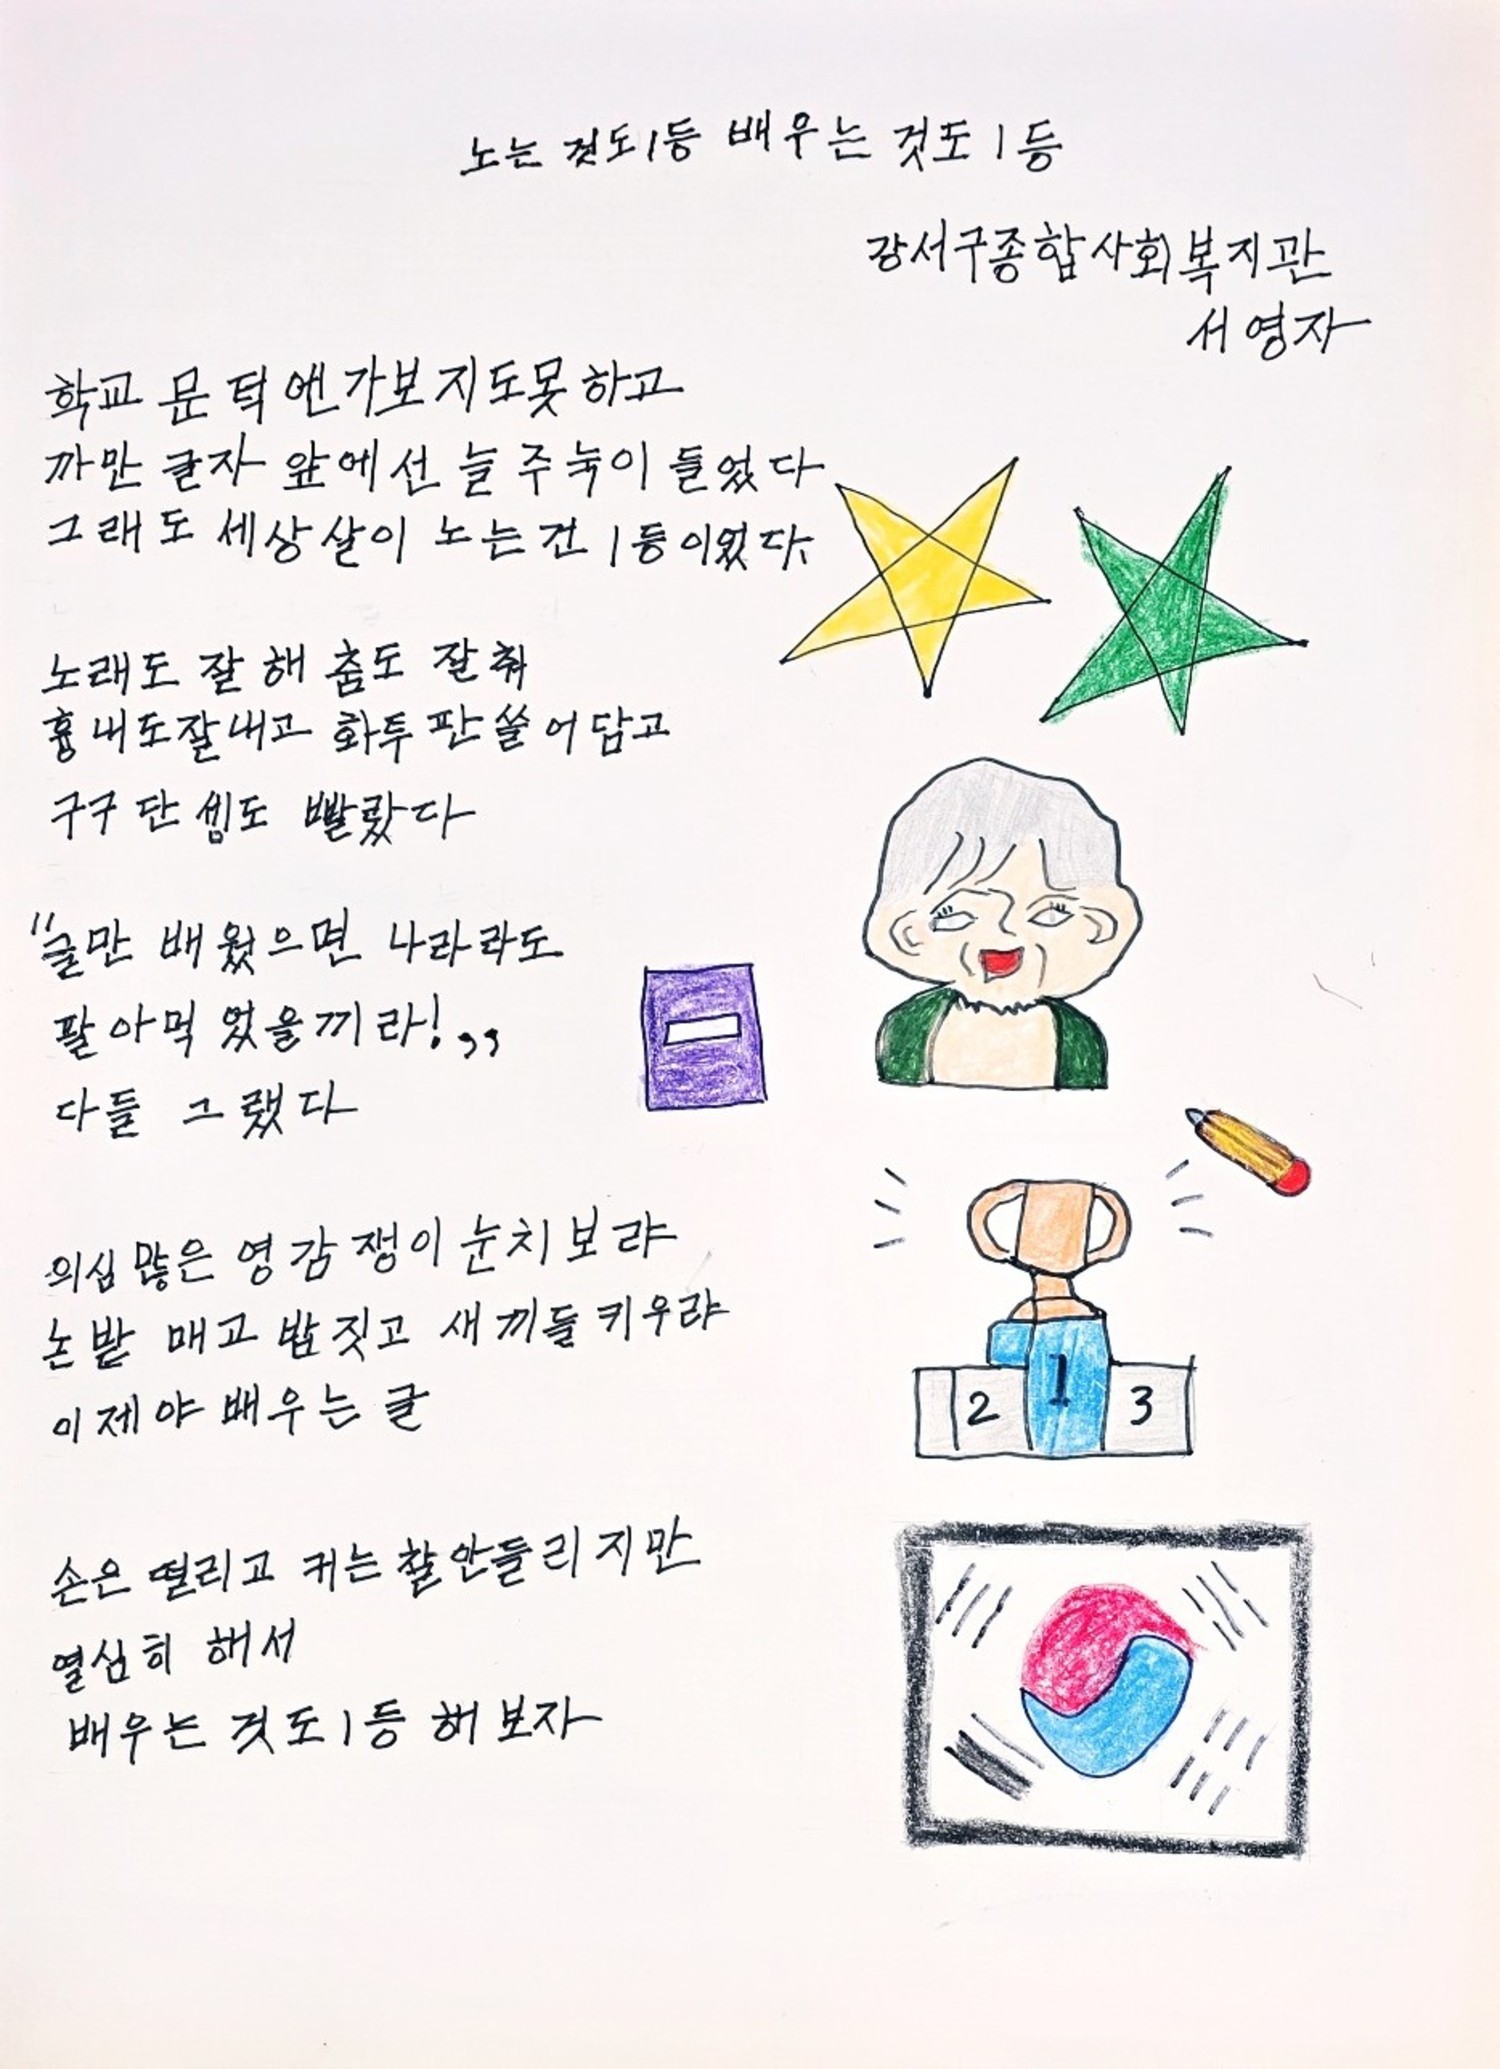 노는 것도 1등 배우는 것도 1등
강서구종합사회복지관
서영자
학교 문턱엔 가보지도 못하고
까만 글자 앞에선 늘 주눅이 들었다
그래도 세상살이 노는 건 1등이었다.
노래도 잘해 춤도 잘춰
흉내도 잘내고 화투판 쓸어담고
구구단 셈도 빨랐다
"글만 배웠으면 나라라도
팔아먹었을끼라!"
다들 그랬다
의심 많은 영감쟁이 눈치보랴
논밭 매고 밥짓고 새끼들 키우랴
이제야 배우는 글
손은 떨리고 귀는 잘 안들리지만
열심히 해서
배우는 것도 1등 해보자
2 1 3